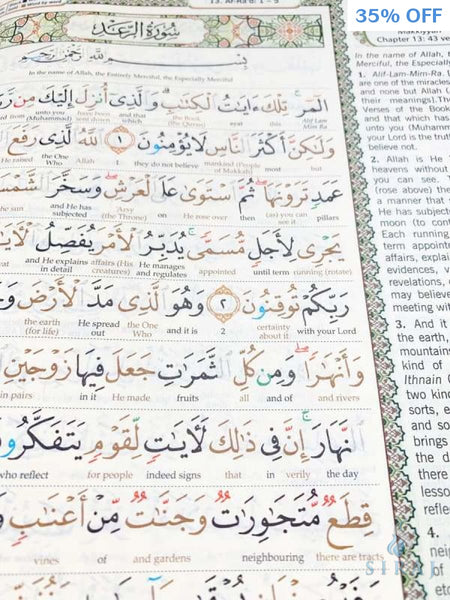 35% OFF
13. Ar-Ra'd: 1 - 5
سُورَةُ الرَّعْدِ
In the name of Allah, the Entirely Merciful, the Especially Merciful
الٓمٓرۚ تِلْكَ ءَايَٰتُ ٱلْكِتَٰبِۗ وَٱلَّذِىٓ أُنزِلَ إِلَيْكَ مِن
unto you have been sent down and that which the Book (the Quran) ayat this Alif Lam Mim Ra
وَلَٰكِنَّ أَكْثَرَ ٱلنَّاسِ لَا يُؤْمِنُونَ ١ ٱللَّهُ ٱلَّذِى رَفَعَ
He raised the One Who Allah 1 they do not believe mankind (People of Makkah) most but
عَمَدٍ تَرَوْنَهَاۖ ثُمَّ ٱسْتَوَىٰ عَلَى ٱلْعَرْشِۖ وَسَخَّرَ ٱلشَّمْسَ
the sun and He has subjected Arsy (the Throne) on He rose over then (as) you can see it pillars
يَجْرِى لِأَجَلٍ مُّسَمًّىۚ يُدَبِّرُ ٱلْأَمْرَ يُفَصِّلُ
and He explains in detail affairs (His creatures) He manages and regulates appointed until term running (rotate)
رَبِّكُمْ تُوقِنُونَ ٢ وَهُوَ ٱلَّذِى مَدَّ ٱلْأَرْضَ
the earth (for life) He spread out the One Who and it is 2 certainty about it with your Lord
وَأَنْهَٰرًاۖ وَمِن كُلِّ ٱلثَّمَرَٰتِ جَعَلَ فِيهَا زَوْجَيْنِ
in pairs in it He made fruits all and of and rivers
ٱلنَّهَارَۚ إِنَّ فِى ذَٰلِكَ لَءَايَٰتٍ لِّقَوْمٍ يَتَفَكَّرُونَ
who reflect for people indeed signs that in verily the day
قِطَعٌ مُّتَجَٰوِرَٰتٌ وَجَنَّٰتٌ مِّنْ أَعْنَٰبٍ
vines of and gardens neighbouring there are tracts
Makkiyyah
Chapter 13: 43 ve
In the name of Allah,
Merciful, the Especially
1. Alif-Lam-Mim-Ra.
are one of the miracles
and none but Allah (
their meanings).
Verses of the Book
and that which has
unto you (Muhammad
your Lord is the truth
believe not.
2. Allah is He
heavens without
you can see.
(rose above) the
a manner that
He has subjected
moon (to cont
Each running
term appoint
affairs, explai
evidences, v
revelations,
may believe
meeting with
3. And it
the earth,
mountain
kind of
Ithnain (
two kind
sorts, e
and so
brings
the da
there
lesso
refle
4.
nei
SIRAJ